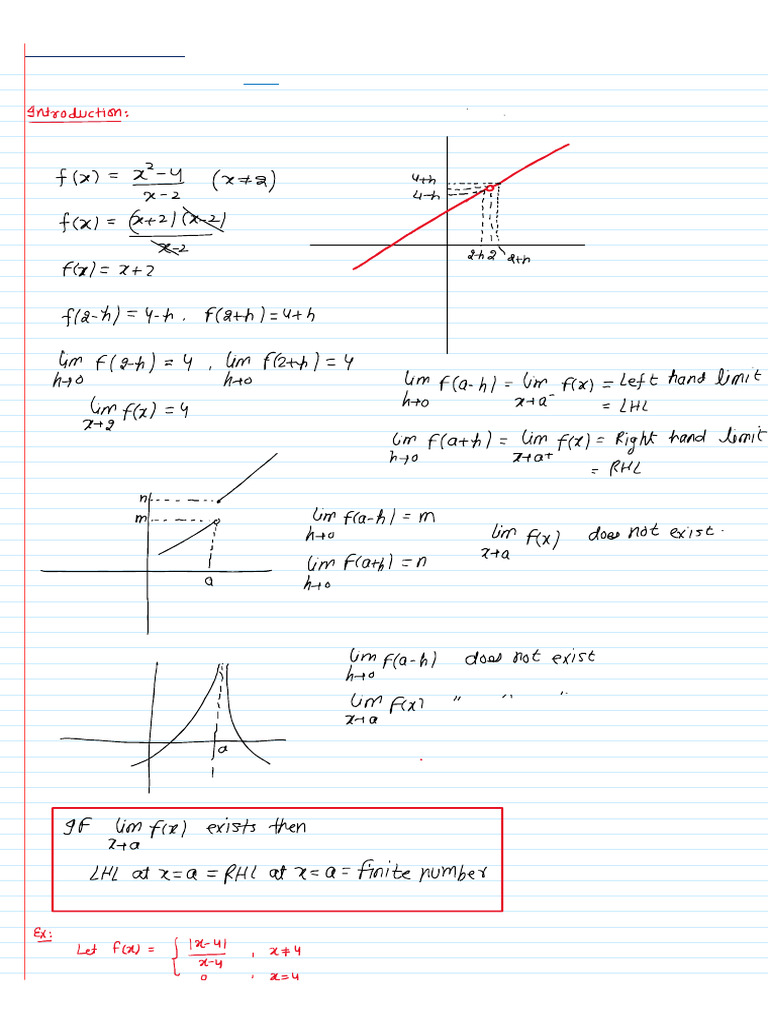 Introduction:
f(x) = x²-4 / x-2 (x≠2)
f(x) = (x+2)(x-2) / x-2
f(x) = x+2
4+h
4-h
2-h 2 2+h
f(2-h) = 4-h, f(2+h) = 4+h
lim h→0 f(2-h) = 4, lim h→0 f(2+h) = 4
lim x→2 f(x) = 4
lim h→0 f(a-h) = lim x→a⁻ f(x) = Left hand limit
= LHL
lim h→0 f(a+h) = lim x→a+ f(x) = Right hand limit
= RHL
n
m
a
lim h→0 f(a-h) = m
lim h→0 f(a+h) = n
lim x→a f(x) does not exist.
a
lim h→0 f(a-h) does not exist
lim x→a f(x) " " "
If lim x→a f(x) exists then
LHL at x=a = RHL at x=a = finite number
Ex:
Let f(x) = { |x-4| / x-4 , x≠4
0 , x=4